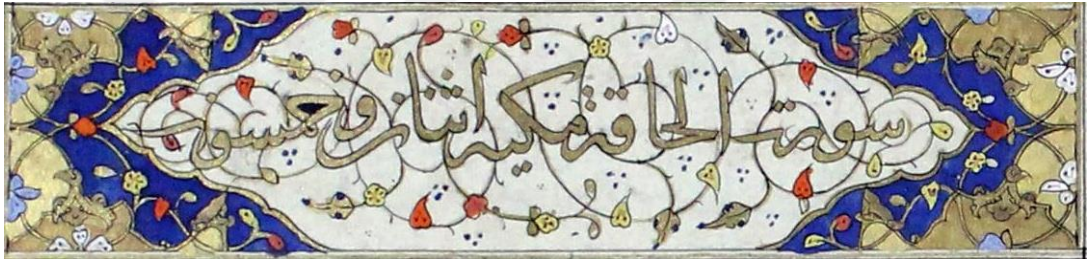 سورت الحاقة مكية اثنان وخمسون